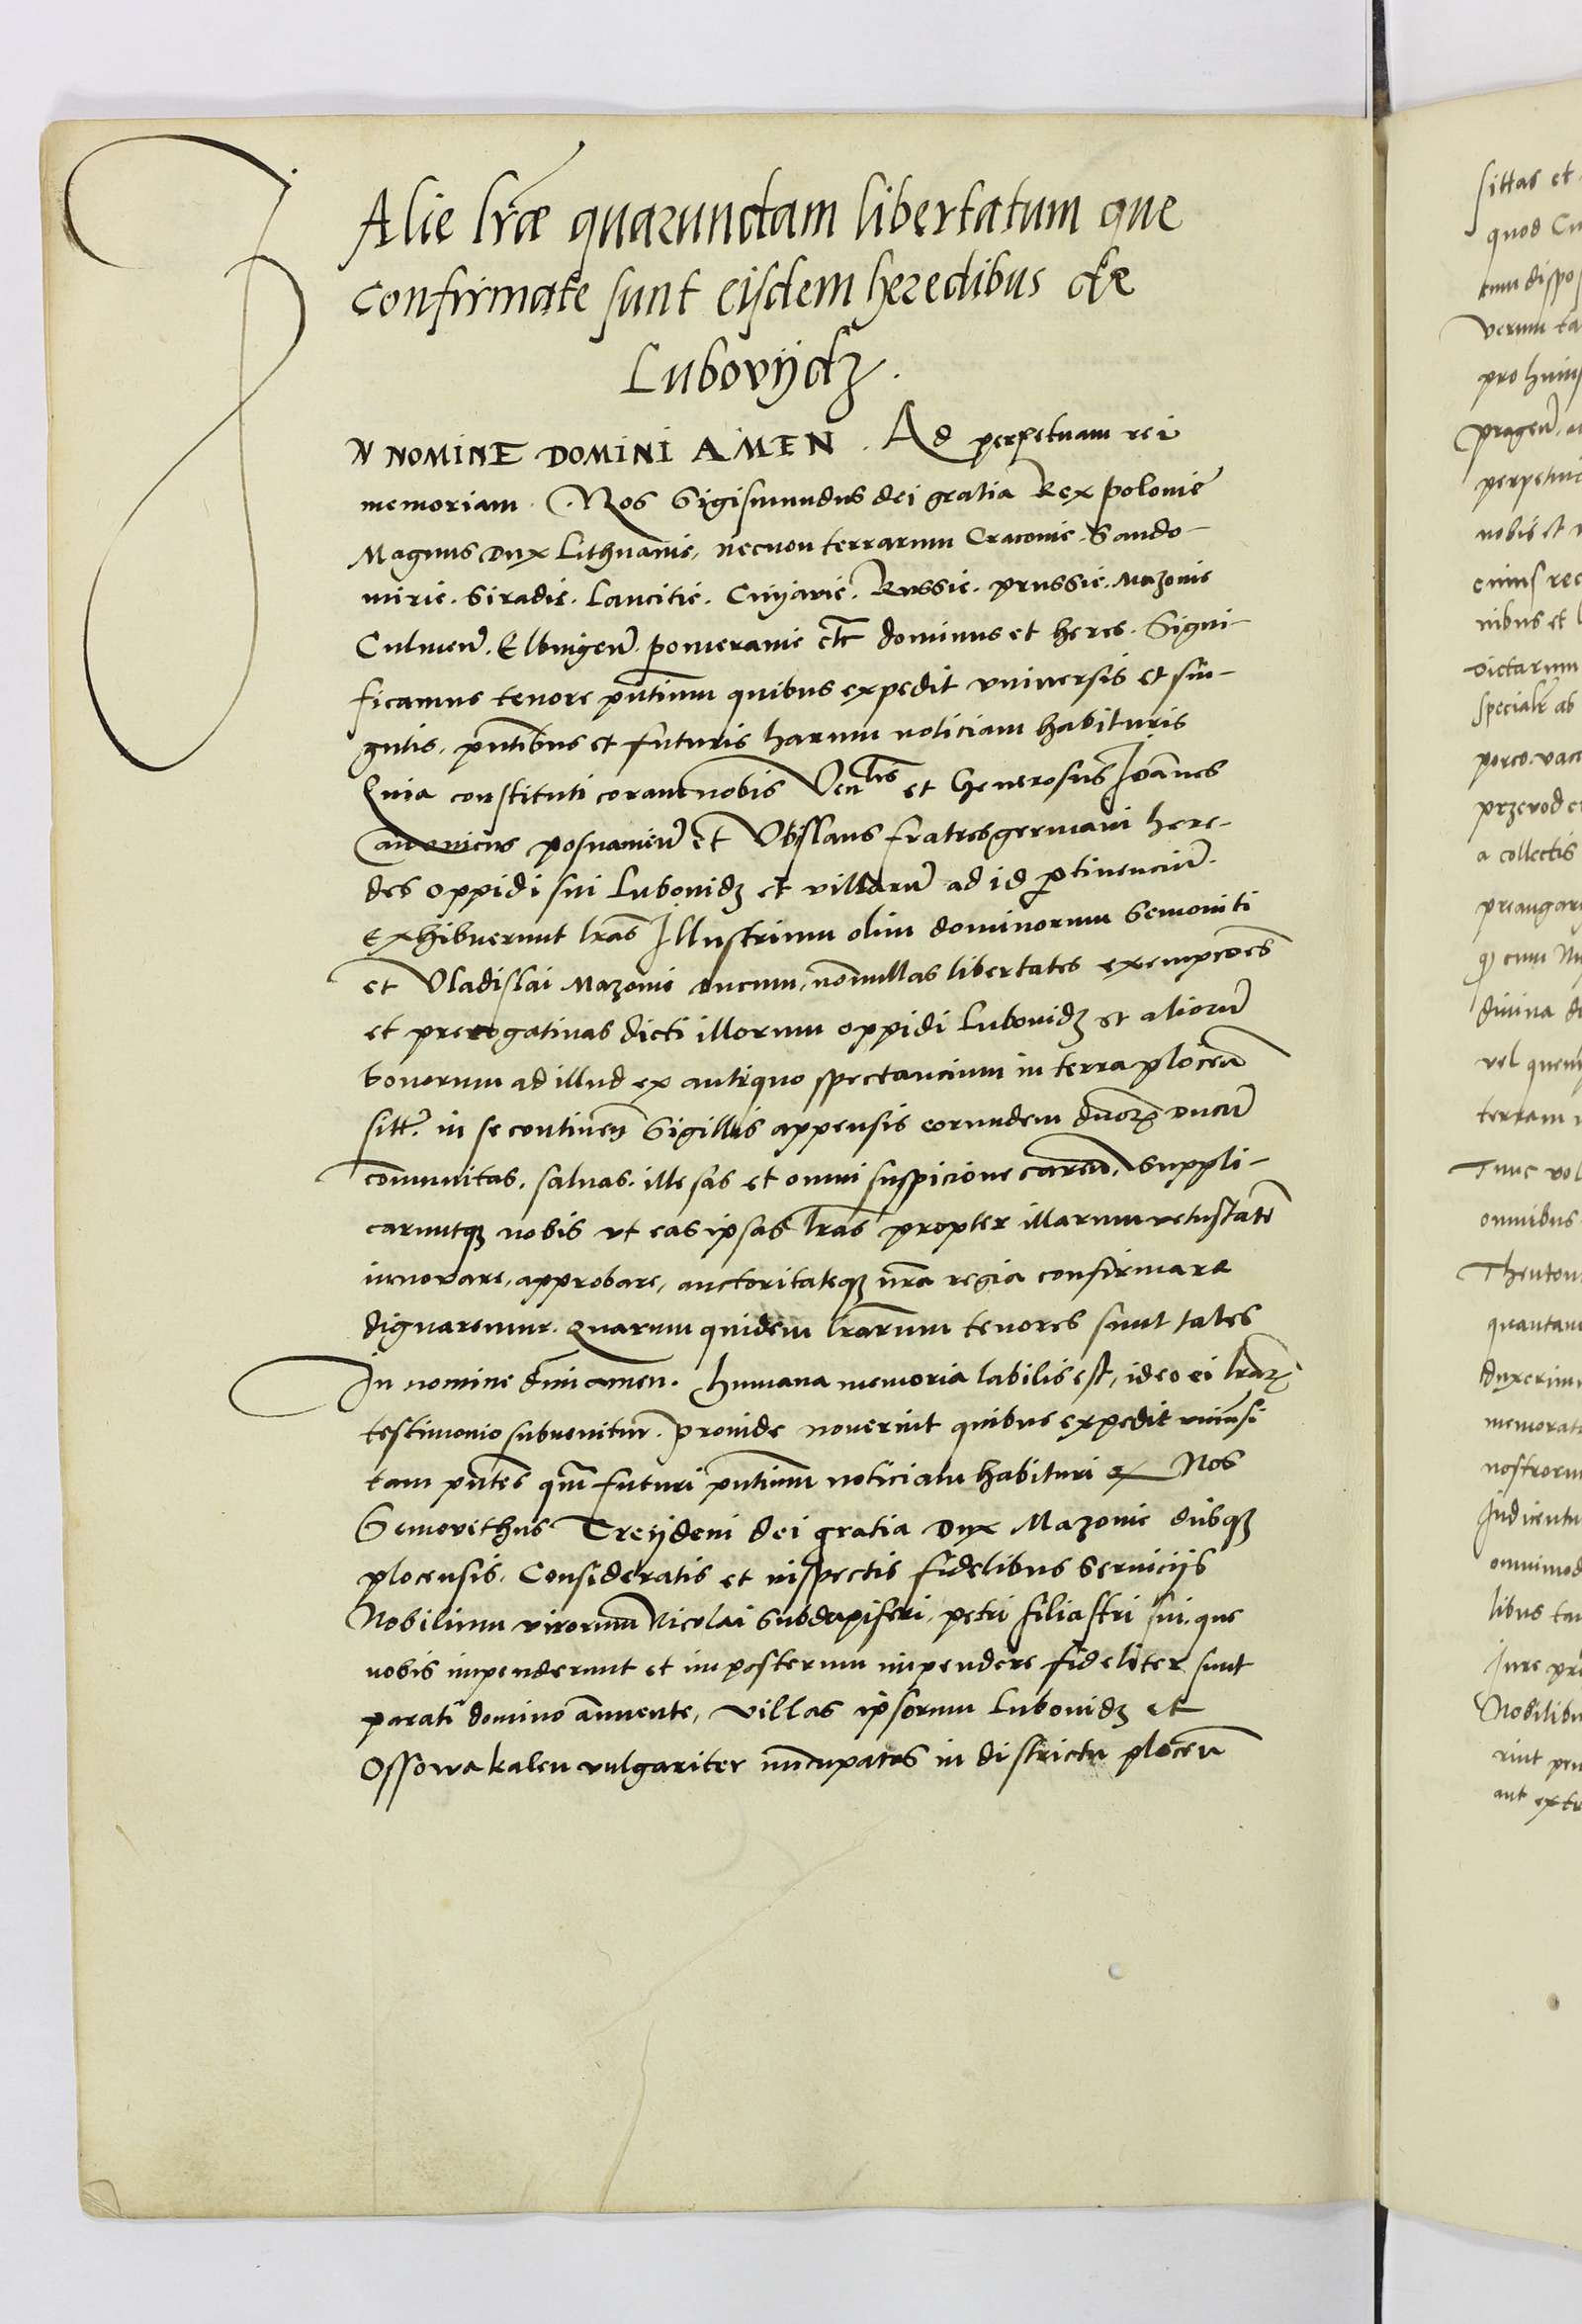 Alie lr̃æ quarundam libertatum que
Confirmate sunt eisdem heredibus de
Lubovijdz.
IN NOMINE DOMINI AMEN. Ad perpetuam rei
memoriam. Nos Sigismundus dei gratia Rex polonie
Magnus Dux Lithuanie, necnon terrarum Cracovie. Sando-
mirie. Siradie. Lancitie. Cuyavie. Russie. prussie. Mazovie
Culmeñ. Elbingeñ. pomeranie etc̃ dominus et heres. Signi-
ficamus tenore pñtium quibus expedit universis et sin-
gulis. pñtibus et futuris harum noticiam habituris
Quia constituti coram nobis Venlis et Generosus Joãnes
Canonicus posnanieñ et Obslaus fratres germani here-
des oppidi sui Lubovidz et villarũ ad id ptinenciũ.
Exhibuerunt lr̃as Illustrium olim dominorum Semoviti
et Vladislai Mazovie ducum, nõnullas libertates exempcões
et prerogativas dicti illorum oppidi Lubovidz et aliorũ
bonorum ad illud ex antiquo spectancium in terra ploceñ
sitt̃. in se contineñ Sigillis appensis eorundem dñorꝝ ducũ
cõmunitas. salvas. illesas et omni suspicione careñ. Suppli-
caruntqꝫ nobis ut eas ipsas lr̃as propter illarum vetustatẽ
innovare, approbare, auctoritateqꝫ nr̃a regia confirmare
dignaremur. Quarum quidem lr̃arum tenores sunt tales
In nomine dñi amen. Humana memoria labilis est, ideo ei lr̃arꝝ
testimonio subvenitur. Proinde noverint quibus expedit uniũsi
tam pñtes qm̃ futuri pñtium noticiam habituri Nos
Semovithus Treijdeni dei gratia Dux Mazovie dũsqꝫ
plocensis. Consideratis et inspectis fidelibus serviciis
Nobilium virorum Nicolai Subdapiferi, petri filiastri sui. que
nobis impenderunt et imposterum impendere fideliter sunt
parati domino ãnuente, villas ipsorum Lubovidz et
Ossowa kalen vulgariter nũcupatas in districtu ploceñ
sittas et
quod Cu
tum dispo
Verum ta
pro huius
prageñ
perpetuis
nobis et
cuius rec
nibus et
Dictarum
specialr̃ ab
porco. vac
przevod
a collectis
preangari
cum
divina
vel quem
terram
Tunc vol
omnibus
Theuton
quantam
duxerim
memorati
nostrorum
Judicentu
omnimod
libus tam
Jure pr
Nobilibu
rint
aut extr